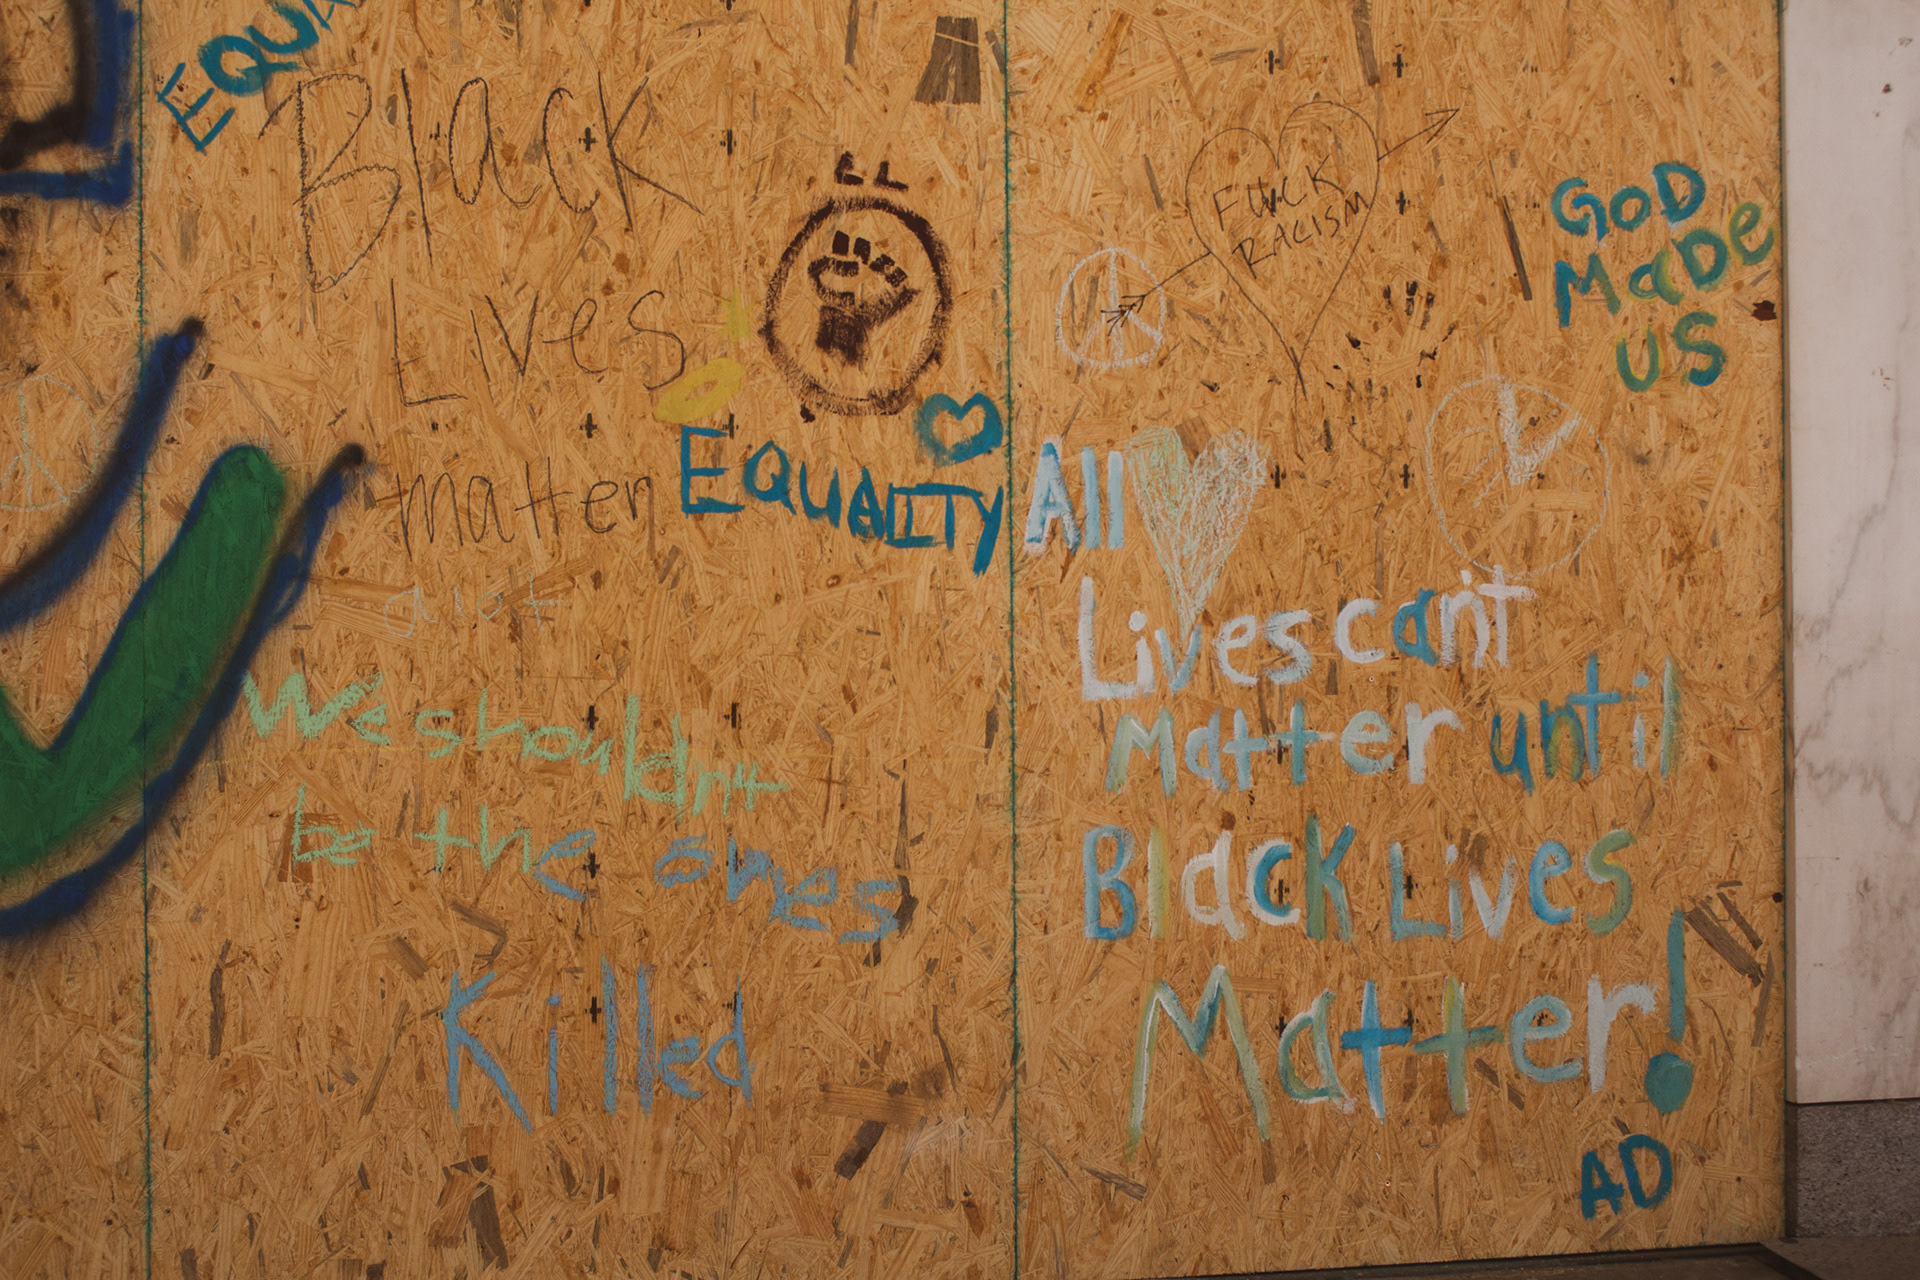 EQUA
Black
Lives
matter
alot
EL
EQUALITY
We shouldnt
be the ones
Killed
FUCK
RACISM
GOD
MaDe
US
All
Lives can't
Matter until
Black Lives
Matter!
AD